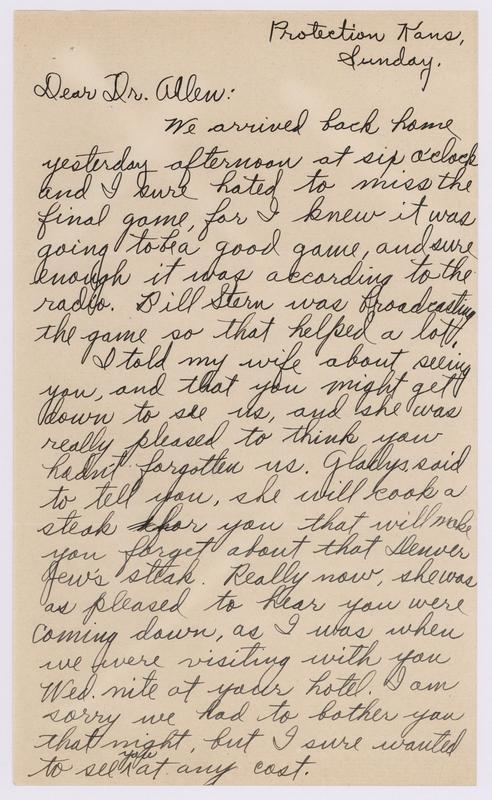 Protection Kans,
Sunday.
Dear Dr. Allen:
We arrived back home
yesterday afternoon at six o'clock
and I sure hated to miss the
final game, for I knew it was
going to be a good game, and sure
enough it was according to the
radio. Bill Stern was broadcasting
the game so that helped a lot.
I told my wife about seeing
you, and that you might get
down to see us, and she was
really pleased to think you
hadn't forgotten us. Gladys said
to tell you, she will cook a
steak for you that will make
you forget about that Denver
Jew's steak. Really now, she was
as pleased to hear you were
coming down, as I was when
we were visiting with you
Wed. nite at your hotel. I am
sorry we had to bother you
that night, but I sure wanted
to see you at any cost.